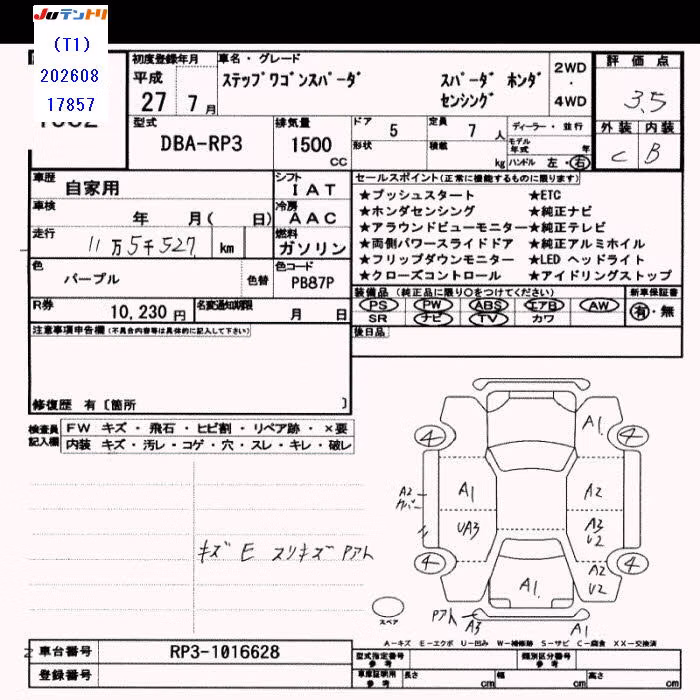 JUテントリ
(T1)
202608
17857
初度登録年月 車名・グレード
平成 27 7月
ステップワゴンスパーダ スパーダ ホンダ
センシング
2WD
・
4WD
評価点
3.5
外装 内装
C B
型式 DBA-RP3
排気量 1500 CC
ドア 5
定員 7 人
形状 積載 kg
ディーラー・並行
モデル年式 年
ハンドル 左・右
車歴 自家用
シフト IAT
車検 年 月( 日)
冷房 AAC
走行 11万5千527 km
燃料 ガソリン
色 パープル 色替
色コード PB87P
R券 10,230円
名変通知期限 月 日
セールスポイント(正常に機能するものに限ります)
★プッシュスタート ★ETC
★ホンダセンシング ★純正ナビ
★アラウンドビューモニター ★純正テレビ
★両側パワースライドドア ★純正アルミホイル
★フリップダウンモニター ★LED ヘッドライト
★クローズコントロール ★アイドリングストップ
装備品(純正品に限り○をつけてください) 新車保証書
PS PW ABS エアB AW
SR ナビ TV カワ
有・無
後日品
注意事項申告欄(不具合内容等は具体的に記入して下さい)
修復歴 有〔箇所 〕
検査員記入欄
FW キズ・飛石・ヒビ割・リペア跡・×要
内装 キズ・汚レ・コゲ・穴・スレ・キレ・破レ
キズ E スリキズ Pアト
A1
4 4
A2 カバー
A1 A2
UA3 A3 U2
4 4
A2 U2
A1
Pアト A3 A1
スペア
A－キズ E－エクボ U－凹み W－補修跡 S－サビ C－腐食 XX－交換済
車台番号 RP3-1016628
登録番号
型式指定番号 参考
類別区分番号 参考
車庫証明用 参考 長さ cm 幅 cm 高さ cm